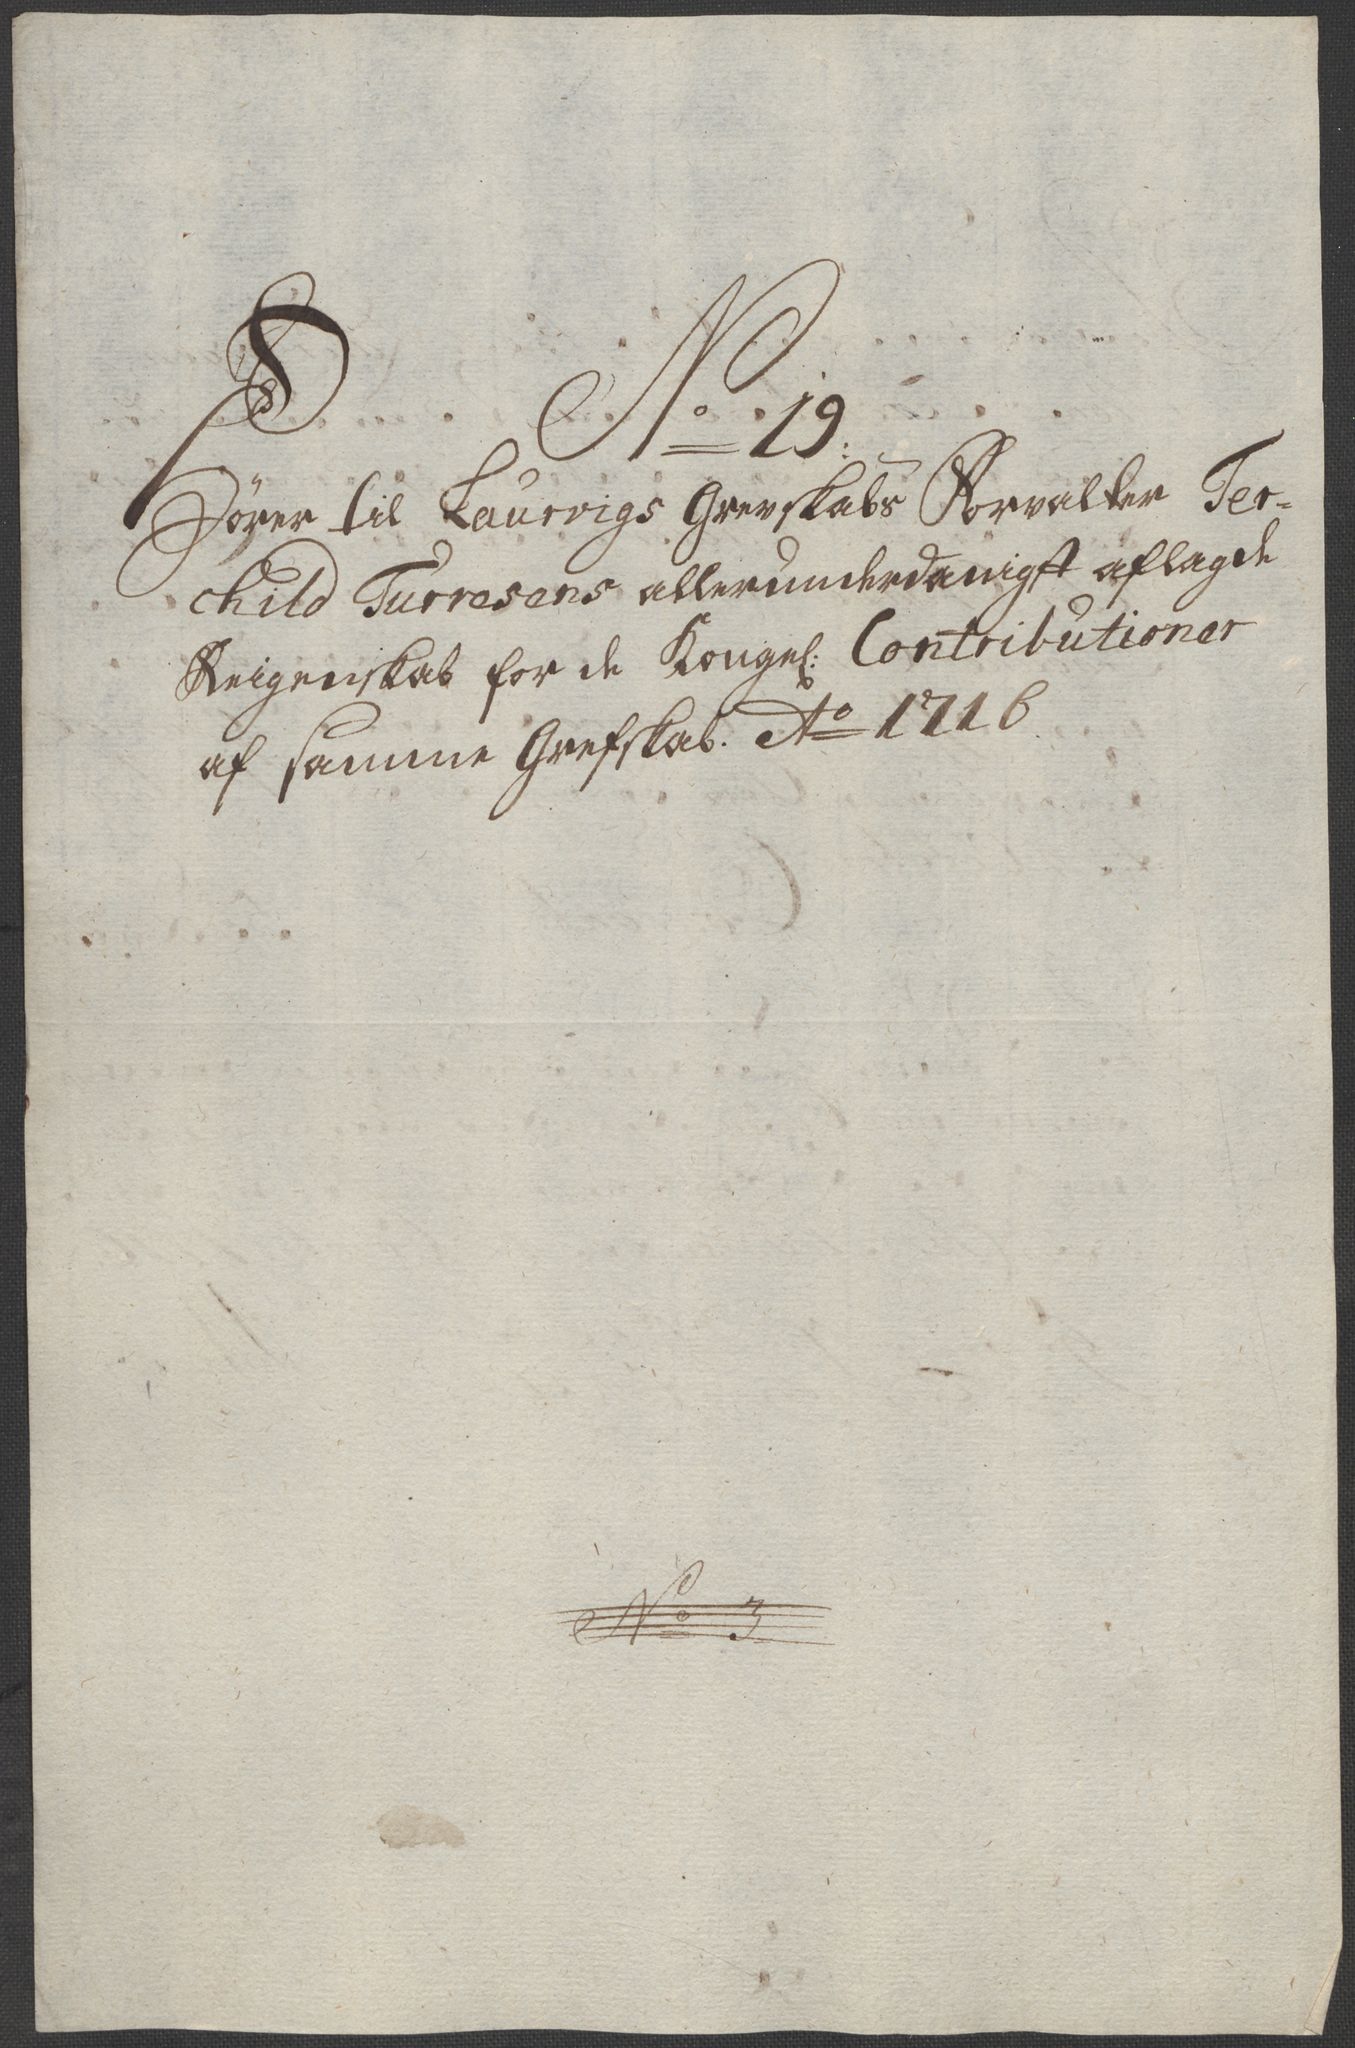 No 19.
Hörer til Laurvigs Grevskabs Forvalter Ter-
child Turresens allerunderdanigst aflagde
Reigenskab for de Kongel: Contributioner
af samme Grefskab. Ao 1716
No 3